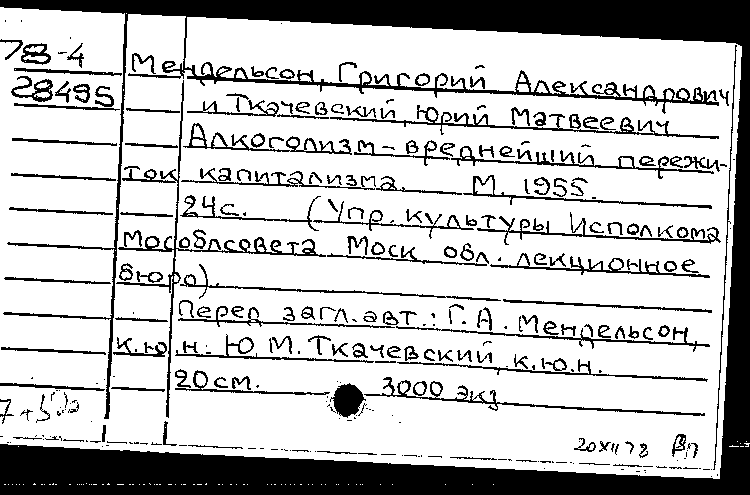 78-4
28495
Мендельсон, Григорий Александрович
и Ткачевский, Юрий Матвеевич
Алкоголизм-вреднейший пережи-
ток капитализма. М., 1955.
24с. (Упр. культуры Исполкома
Мособлсовета Моск. обл. лекционное
бюро).
Перед загл. авт.: Г.А. Мендельсон,
к.ю.н. Ю.М. Ткачевский, к.ю.н.
20см. 3000 экз.
20 XII 78